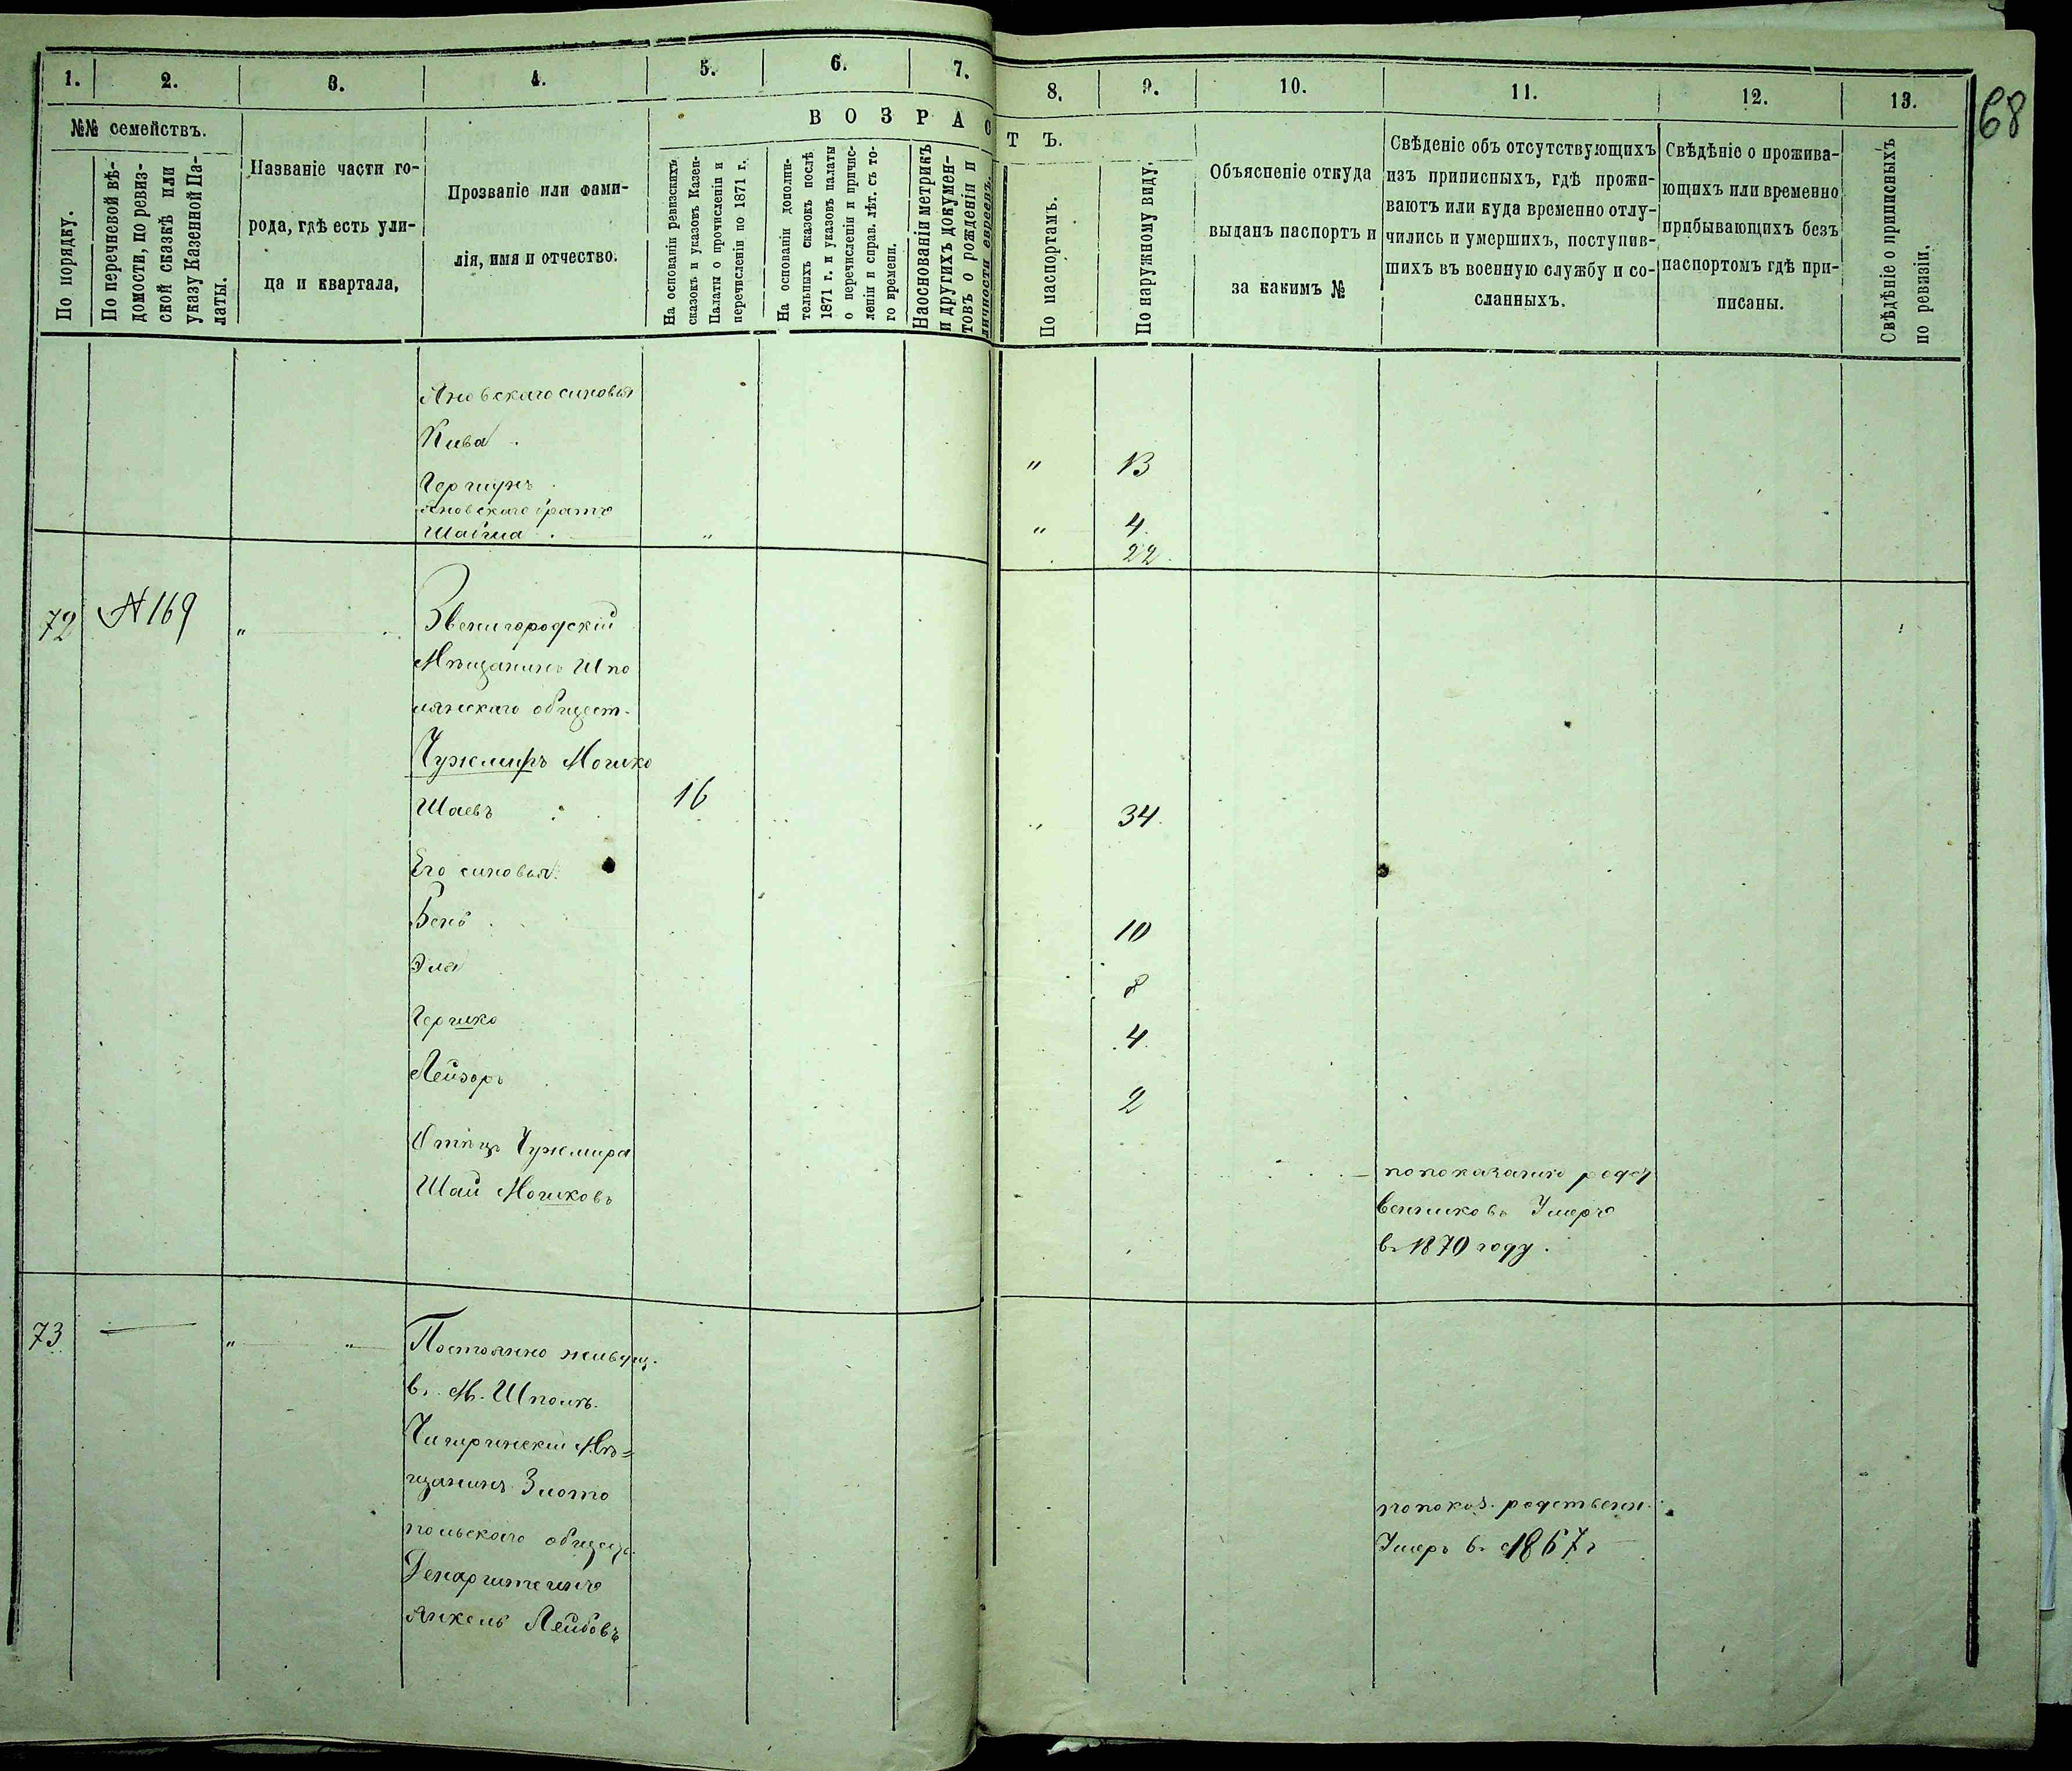 68
1. 2. 3. 4. 5. 6. 7. 8. 9. 10. 11. 12. 13.
№№ семействъ.
По порядку.
По перечневой вѣ-
домости, по ревиз-
ской сказкѣ или
указу Казенной Па-
латы.
Названіе части го-
рода, гдѣ есть ули-
ца и квартала,
Прозваніе или фами-
лія, имя и отчество.
ВОЗРАСТЪ.
На основаніи ревизскихъ
сказокъ и указовъ Казен-
Палаты о прочисленіи и
перечисленіи по 1871 г.
На основаніи дополни-
тельныхъ сказокъ послѣ
1871 г. и указовъ палаты
о перечисленіи и причис-
леніи и справ. лѣт. съ то-
го времени.
На основаніи метрикъ
и другихъ докумен-
товъ о рожденіи и
личности евреевъ.
По паспортамъ.
По наружному виду.
Объясненіе откуда
выданъ паспортъ и
за какимъ №
Свѣденіе объ отсутствующихъ
изъ приписныхъ, гдѣ прожи-
ваютъ или куда временно отлу-
чились и умершихъ, поступив-
шихъ въ военную службу и со-
сланныхъ.
Свѣдѣніе о прожива-
ющихъ или временно
прибывающихъ безъ
паспортомъ гдѣ при-
писаны.
Свѣдѣніе о приписныхъ
по ревизіи.
Яновскаго синовья
Кива " 13
Гершунъ " 4
Яновскаго братъ
Шабша " 22
72 №169 " Звенигородскій
Мѣщанинъ Шпо
лянскаго общест.
Чужмиръ Мошко
Шаевъ 16 " 34
Его синовья:
Бенъ 10
Эля 8
Гершко 4
Лейзоръ 2
Отѣцъ Чужмира
Шай Мошковъ
по показанію родст
венниковъ Умеръ
въ 1870 году.
73 — " " Постоянно живущ.
въ М. Шполѣ.
Чигиринскій Мѣ=
щанинъ Злото
польскаго общес.
Янкель Лейбовъ
по показ. родственн.
Умеръ въ 1867 г